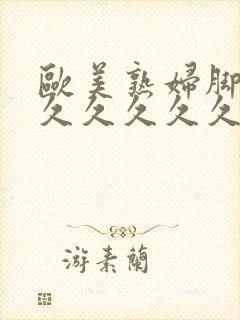 歐美熟婦腳
久久久久久
游素蘭